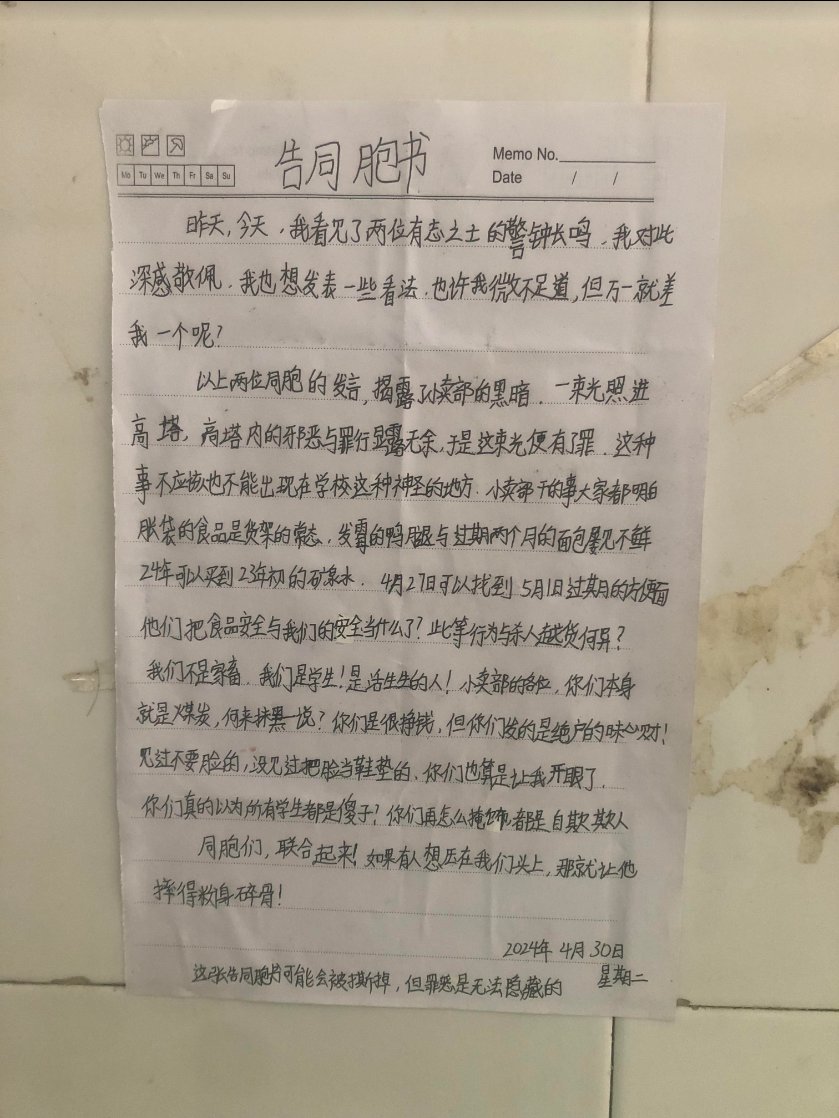 告同胞书
Memo No.
Mo Tu We Th Fr Sa Su
Date / /
昨天,今天,我看见了两位有志之士的警钟长鸣,我对此
深感敬佩,我也想发表一些看法,也许我微不足道,但万一就差
我一个呢?
以上两位同胞的发言,揭露了小卖部的黑暗.一束光照进
高塔,高塔内的邪恶与罪行显露无余,于是这束光便有了罪.这种
事不应该也不能出现在学校这种神圣的地方.小卖部干的事大家都明白
胀袋的食品是货架的常态,发霉的鸭腿与过期两个月的面包屡见不鲜
24年可以买到23年初的矿泉水.4月27日可以找到5月1日过期的方便面
他们把食品安全与我们的安全当什么了?此等行为与杀人越货何异?
我们不是家畜.我们是学生!是活生生的人!小卖部的各位,你们本身
就是煤炭,何来抹黑一说?你们是很挣钱,但你们发的是绝户的昧心财!
见过不要脸的,没见过把脸当鞋垫的,你们也算是让我开眼了.
你们真的以为所有学生都是傻子?你们再怎么掩饰都是自欺欺人
同胞们,联合起来!如果有人想压在我们头上,那就让他
摔得粉身碎骨!
2024年4月30日
星期二
这张告同胞书可能会被撕掉,但罪恶是无法隐藏的